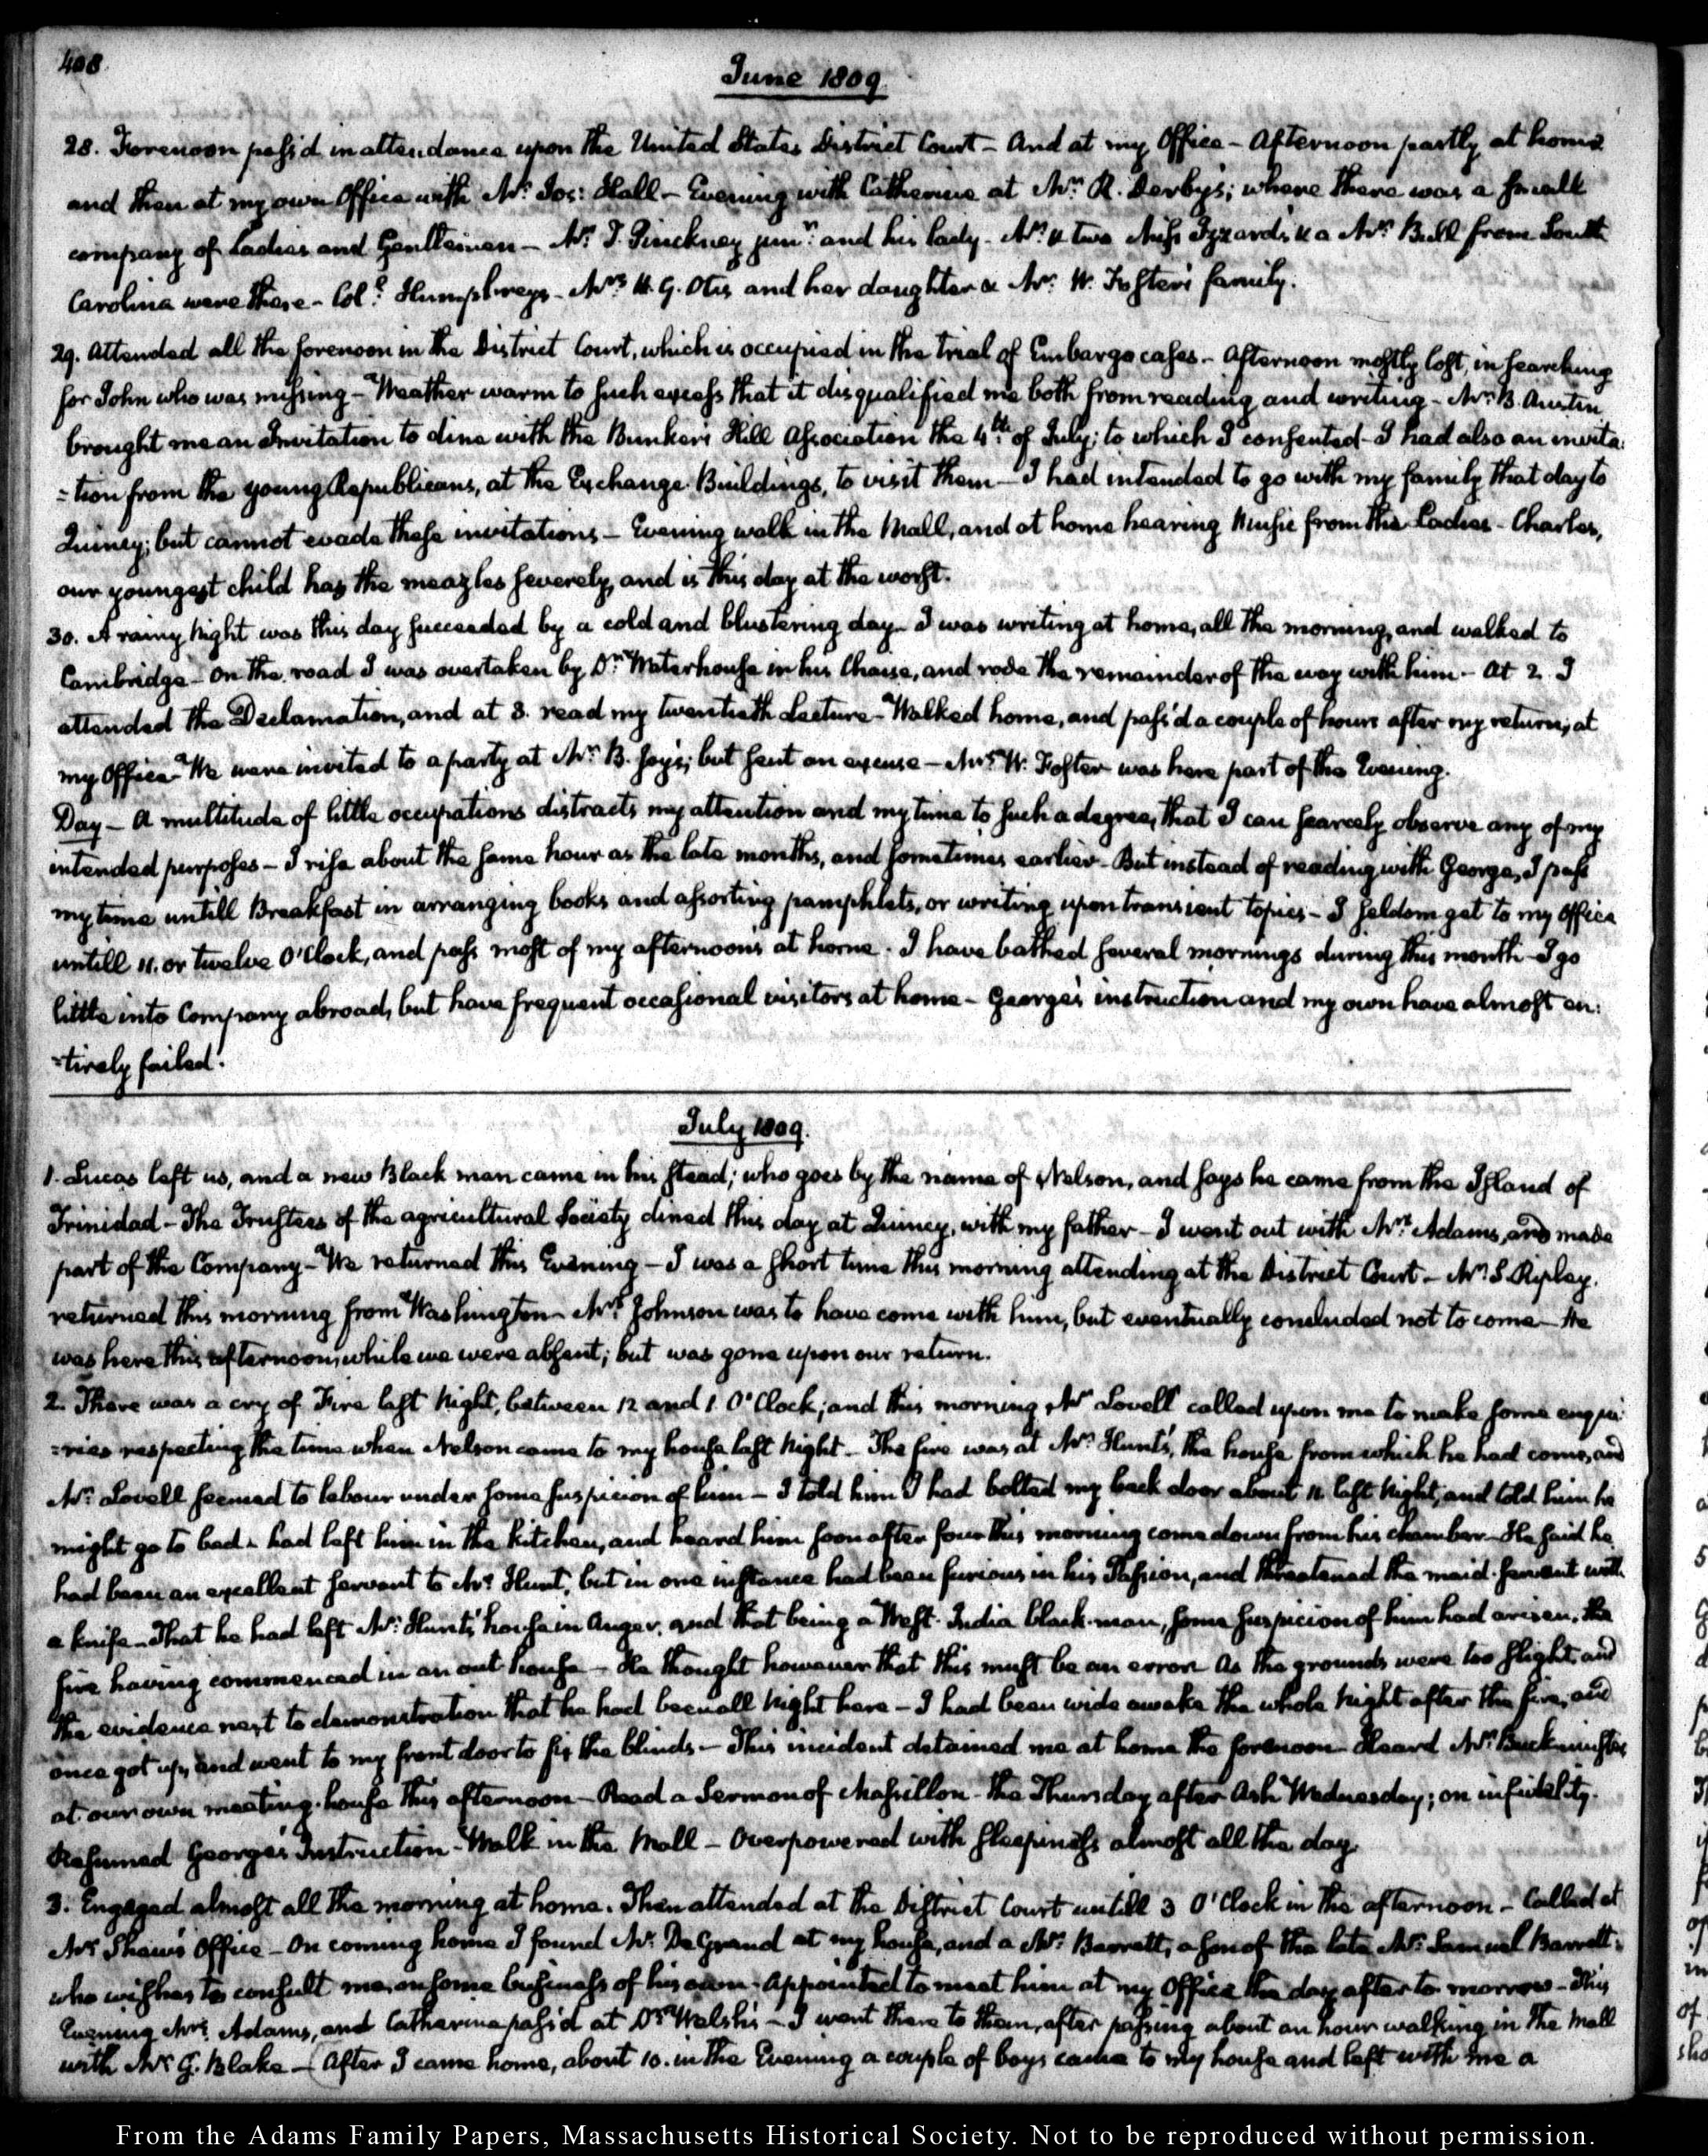 408
June 1809
28. Forenoon pass'd in attendance upon the United States District Court - And at my Office - Afternoon partly at home
and then at my own Office with Mr. Jos: Hall - Evening with Catherine at Mrs. R. Derby's; where there was a small
company of Ladies and Gentlemen - Mr. T. Pinckney junr. and his lady - Mr. & two Miss Izzards & a Mrs. Bull from South
Carolina were there - Coll. Humphreys - Mrs. H. G. Otis and her daughter & Mr. W. Foster's family.
29. Attended all the forenoon in the District Court, which is occupied in the trial of Embargo cases - Afternoon mostly lost, in searching
for John who was missing - Weather warm to such excess that it disqualified me both from reading and writing - Mr. B. Austin
brought me an Invitation to dine with the Bunker's Hill Association the 4th. of July; to which I consented - I had also an invita:
=tion from the young Republicans, at the Exchange Buildings, to visit them - I had intended to go with my family that day to
Quincy; but cannot evade these invitations - Evening walk in the Mall, and at home hearing Music from the Ladies - Charles,
our youngest child has the meazles severely, and is this day at the worst.
30. A rainy Night was this day succeeded by a cold and blustering day - I was writing at home, all the morning, and walked to
Cambridge - On the road I was overtaken by Dr. Waterhouse in his Chaise, and rode the remainder of the way with him - At 2. I
attended the Declamation, and at 3. read my twentieth Lecture - Walked home, and pass'd a couple of hours after my return, at
my Office - We were invited to a party at Mr. B. Joy's; but sent an excuse - Mrs. W. Foster was here part of the Evening.
Day - A multitude of little occupations distracts my attention and my time to such a degree, that I can scarcely observe any of my
intended purposes - I rise about the same hour as the late months, and sometimes earlier - But instead of reading with George, I pass
my time untill Breakfast in arranging books and assorting pamphlets, or writing upon transient topics - I seldom get to my Office
untill 11. or twelve O'Clock, and pass most of my afternoons at home. I have bathed several mornings during this month - I go
little into Company abroad, but have frequent occasional visitors at home - George's instruction and my own have almost en:
=tirely failed.
July 1809.
1. Lucas left us, and a new Black man came in his stead; who goes by the name of Nelson, and says he came from the Island of
Trinidad - The Trustees of the agricultural Society dined this day at Quincy, with my father - I went out with Mrs. Adams, and made
part of the Company - We returned this Evening - I was a short time this morning attending at the District Court - Mr. S. Ripley.
returned this morning from Washington - Mrs. Johnson was to have come with him, but eventually concluded not to come - He
was here this afternoon, while we were absent; but was gone upon our return.
2. There was a cry of Fire last Night, between 12 and 1. O'Clock; and this morning Mr. Lovell called upon me to make some enqui:
=ries respecting the time when Nelson came to my house last Night - The fire was at Mr. Hunt's, the house from which he had come, and
Mr. Lovell seemed to labour under some suspicion of him - I told him I had bolted my back door about 11. last Night, and told him he
might go to bed - had left him in the kitchen, and heard him soon after four this morning come down from his chamber - He said he
had been an excellent servant to Mr. Hunt, but in one instance had been furious in his Passion, and threatened the maid-servant with
a knife - That he had left Mr. Hunt's house in Anger, and that being a West-India black-man, some suspicion of him had arisen, the
fire having commenced in an out house - He thought however that this must be an error as the grounds were too slight, and
the evidence next to demonstration that he had been all Night here - I had been wide awake the whole Night after the fire, and
once got up, and went to my front door to fix the blinds - This incident detained me at home the forenoon - Heard Mr. Buckminster
at our own meeting-house this afternoon - Read a Sermon of Massillon - the Thursday after Ash Wednesday; on infidelity.
Resumed George's Instruction - Walk in the Mall - Overpowered with sleepiness almost all the day.
3. Engaged almost all the morning at home. Then attended at the District Court untill 3 O'Clock in the afternoon - Called at
Mr. Shaw's Office - On coming home I found Mr. DeGrand at my house, and a Mr. Barrett, a son of the late Mr. Samuel Barrett:
who wishes to consult me, on some business of his own - Appointed to meet him at my Office the day after to-morrow - This
Evening Mrs. Adams, and Catherine pass'd at Dr. Welsh's - I went there to them, after passing about an hour walking in the Mall
with Mr. G. Blake - (After I came home, about 10. in the Evening a couple of boys came to my house and left with me a
From the Adams Family Papers, Massachusetts Historical Society. Not to be reproduced without permission.